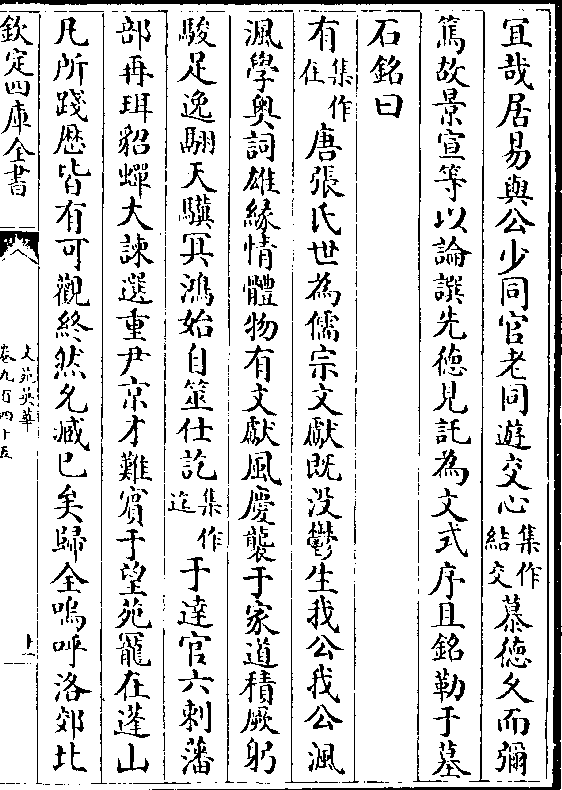 宜哉居易與公少同官老同遊交心集作結交慕德久而彌
篤故景宣等以論譔先德見託為文式序且銘勒于墓
石銘曰
有集作住唐張氏世為儒宗文獻既没鬱生我公我公渢
渢學奥詞雄緣情體物有文獻風慶襲于家道積厥躬
駿足逸翮天驥冥鴻始自筮仕訖集作迄于達官六刺藩
部再珥貂蟬大諫選重尹京才難賓于望苑寵在蓬山
凡所踐歷皆有可觀終然允臧已矣歸全嗚呼洛郊北
欽定四庫全書
文苑英華
卷九百四十五
十一